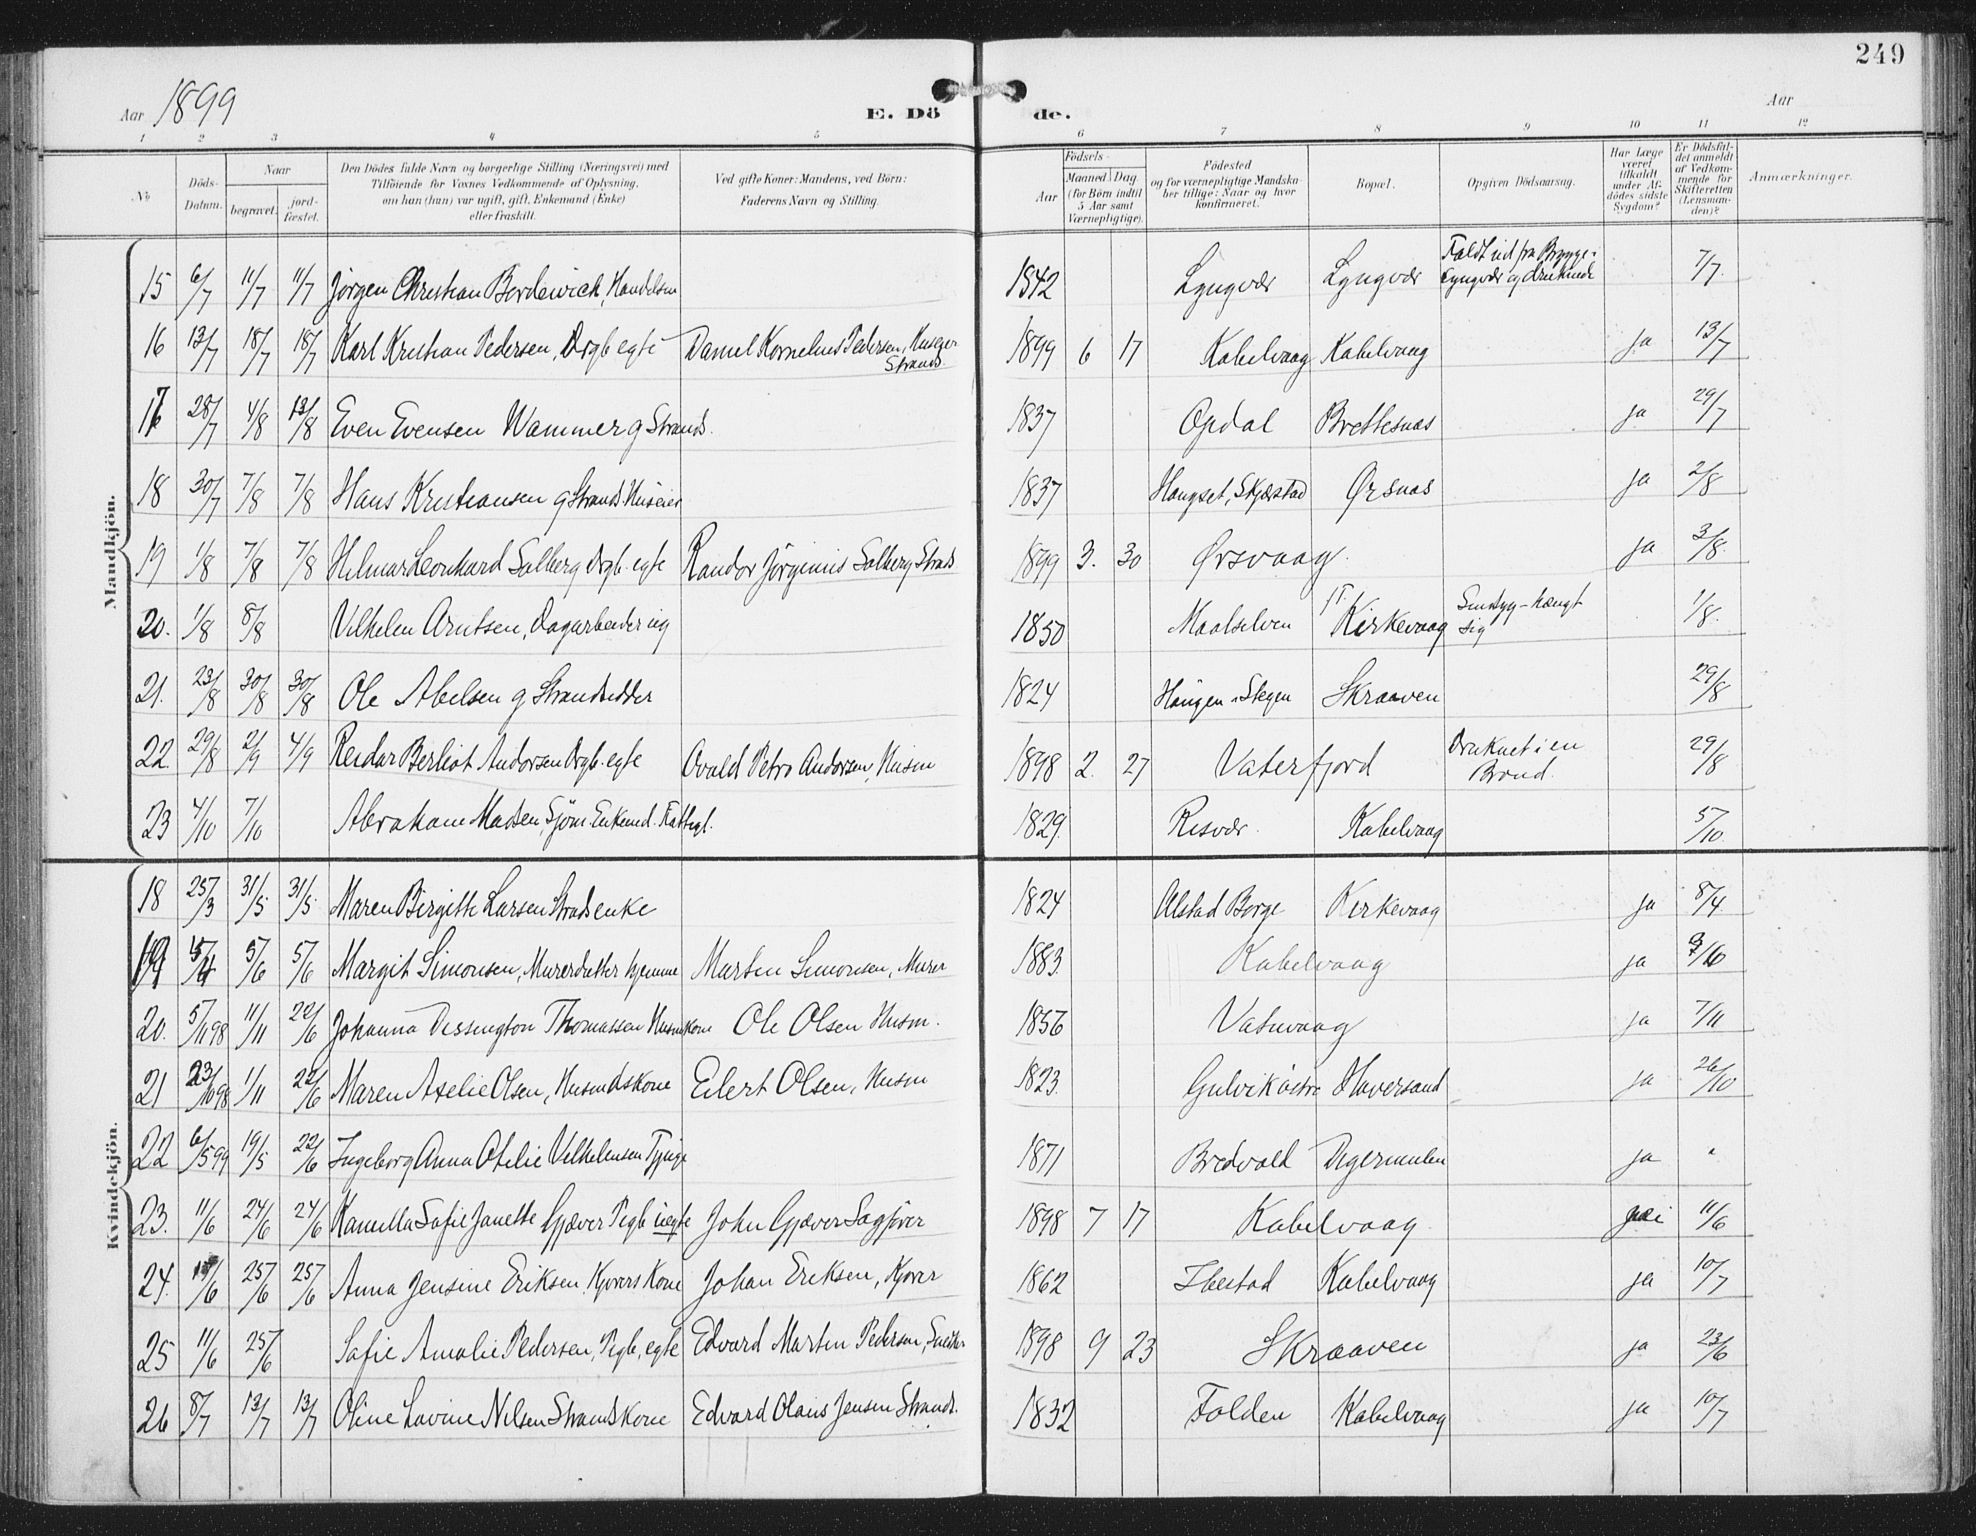 249
Aar 1899
E. Dö de.
Aar
1 2 3 4 5 6 7 8 9 10 11 12
No
Döds-Datum.
Naar
begravet.
jord-fæstet.
Den Dödes fulde Navn og borgerlige Stilling (Næringsvei) med
Tilföiende for Voxnes Vedkommende af Oplysning,
om han (hun) var ugift, gift, Enkemand (Enke)
eller fraskilt.
Ved gifte Koner: Mandens, ved Börn:
Faderens Navn og Stilling.
Födsels-
Aar
Maaned Dag
(for Börn indtil
5 Aar samt
Værnepligtige).
Födested
og for værnepligtige Mandska-
ber tillige: Naar og hvor
konfirmeret.
Bopæl.
Opgiven Dödsaarsag.
Har Læge
været
tilkaldt
under Af-
dödes sidste
Sygdom?
Er Dödsfal-
det anmeldt
af Vedkom-
mende for
Skifteretten
(Lensman-
den)?
Anmærkninger.
Mandkjön.
15 6/7 11/7 11/7 Jörgen Christian Bordewick, Handelsm 1842 Lyngvær Lyngvær Faldt ud fra Brygge i Lyngvær og druknede 7/7
16 13/7 18/7 18/7 Karl Kristian Pedersen, Drgb egte Daniel Kornelius Pedersen, Huseier Strands. 1899 6 17 Kabelvaag Kabelvaag ja 13/7
17 28/7 4/8 13/8 Even Evensen Wammer g Strands. 1837 Opdal Brettesnæs ja 29/7
18 30/7 7/8 7/8 Hans Kristiansen g Strands. Huseier 1837 Haugset, Skjerstad Ørsnæs ja 2/8
19 1/8 7/8 7/8 Hilmar Leonhard Solberg Drgb. egte Randor Jörginus Solberg Strads 1899 3. 30 Ørsvaag ja 3/8
20. 1/8 8/8 Vilhelm Arntsen, Dagarbeider ug 1850 Maalselven Kirkevaag Sindsyg - hængt sig 1/8.
21. 23/8 30/8 30/8 Ole Abelsen g Strandsidder 1824 Haugen i Stegen Skraaven 29/8
22. 29/8 2/9 4/9 Reidar Berliot Andorsen Drgb. egte Ovald Petro Andorsen, Husm 1898 2. 27 Vaterfjord Druknet i en Brønd. 29/8
23 4/10 7/10 Abraham Madsen, Sjöm. Enkemd. Fattigl. 1829 Risvær Kabelvaag 5/10.
Kvindekjön.
18 25/3 31/5 31/5 Maren Birgitte Larsen Stradsenke 1824 Alstad Borge Kirkevaag ja 8/4
19 5/6 5/6 Margit Simonsen, Murerdatter hjemme Martin Simonsen, Murer 1883 Kabelvaag ja
20. 5/11 98 11/11 22/6 Johanna Dessington Thomassen Husmkone Ole Olsen Husm. 1856 Vatnvaag ja 7/11
21 23/10 98 1/11 22/6 Maren Axelie Olsen, Husmdskone Eilert Olsen, Husm 1823. Gulvik östre Haversand ja 26/10
22 6/5 99 19/5 22/6 Ingeborg Anna Otilie Vilhelmsen Tjpige 1871 Bredvold Digermulen ja "
23. 11/6 24/6 24/6 Kamilla Sofie Janette Gjæver Pigb. uegte John Gjæver Sagförer 1898 7 17 Kabelvaag nei 11/6
24. 25/6 25/6 Anna Jensine Eriksen, Kjörers Kone Johan Eriksen, Kjörer 1862 Ibestad Kabelvaag ja 10/7
25 11/6 25/6 Sofie Amalie Pedersen, Pigb, egte Edvard Martin Pedersen, Snedker 1898 9 23 Skraaven ja 23/6
26 8/7 13/7 13/7 Oline Lovine Nilsen Strandskone Edvard Olaus Jensen Strands. 1832 Folden Kabelvaag ja 10/7